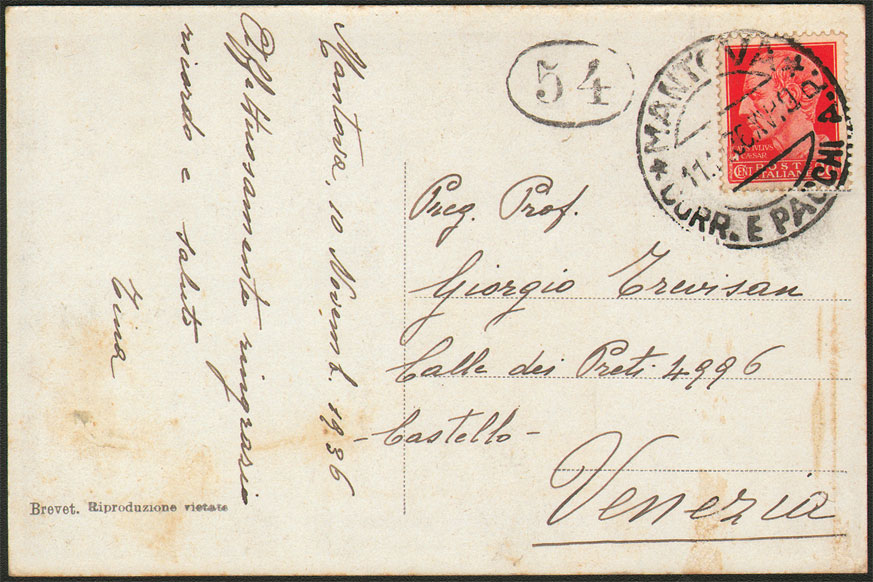 Mantova, 10 Novemb. 1936
Affettuosamente ringrazio
ricordo e saluto
Tina
54
* MANTOVA *
CORR. E PACCHI A.P.
IVLIVS
CAESAR
POSTE
ITALIANE
CENT
Preg. Prof.
Giorgio Trevisan
Calle dei Preti 4996
- Castello -
Venezia
Brevet. Riproduzione vietate